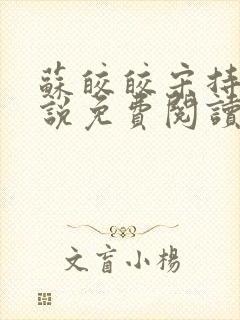 蘇皎皎宋持
說免費閱讀
文盲小楊